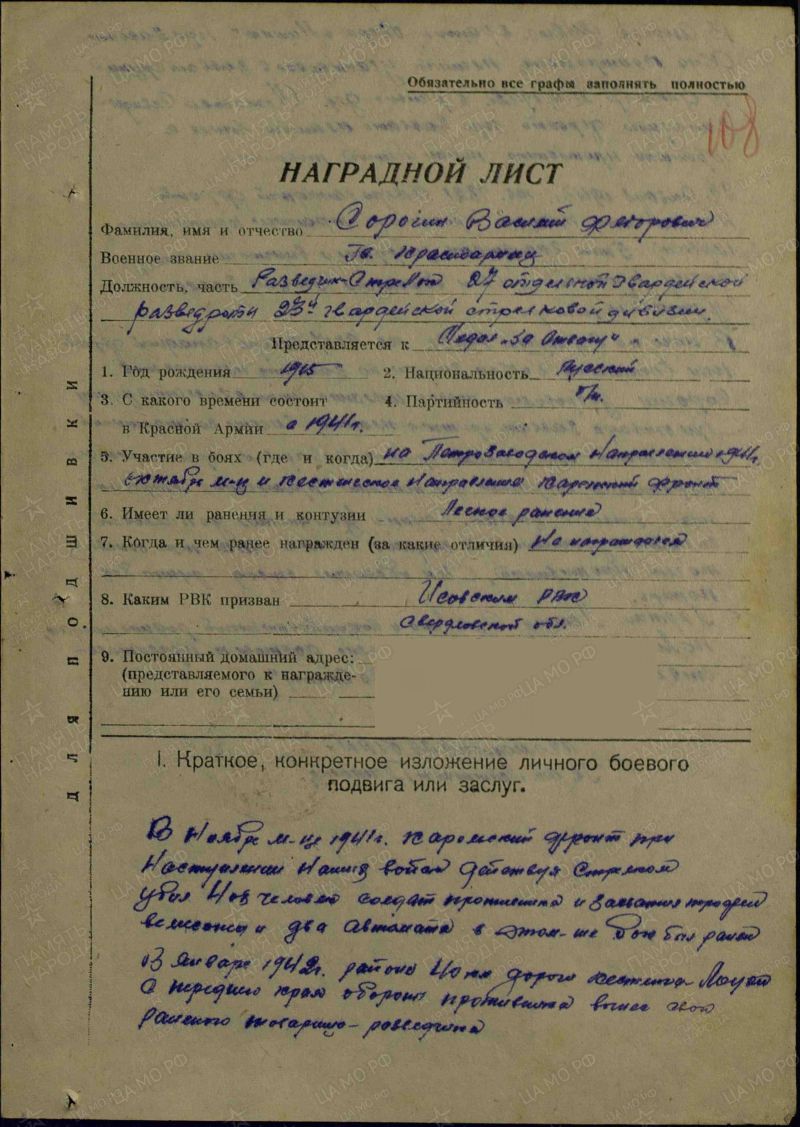 Обязательно все графы заполнять полностью
108
НАГРАДНОЙ ЛИСТ
Фамилия, имя и отчество Сорогин Василий Федорович
Военное звание Гв. красноармеец
Должность, часть Разведчик-Стрелок 27 отдельной Гвардейской
разведроты 23й гвардейской стрелковой дивизии.
Представляется к Медал „За Отвагу"
1. Год рождения 1915 2. Национальность Русский
3. С какого времени состоит 4. Партийность б/п.
в Красной Армии с 1941г.
5. Участие в боях (где и когда) на Петрозаводском Направлении 1941г.
октябре м-ц и кестенгское Направление Карельский фронт
6. Имеет ли ранения и контузии Легкое ранение
7. Когда и чем ранее награжден (за какие отличия) Не награждался
8. Каким РВК призван Исовским РВК
Свердловской обл.
9. Постоянный домашний адрес:
(представляемого к награжде-
нию или его семьи)
Для подшивки
I. Краткое, конкретное изложение личного боевого
подвига или заслуг.
В Ноябре м-це 1941г. Карельский фронт при
Наступлении Наших войск действуя Стрелком
убил человек солдат противника и захватил трофеи
и два автомата в этом-же бою был ранен
В Январе 1942г. районе 40 км дороги кестеньга-Лоухи
с переднего края обороны противника вынес
раненого товарища-разведчика